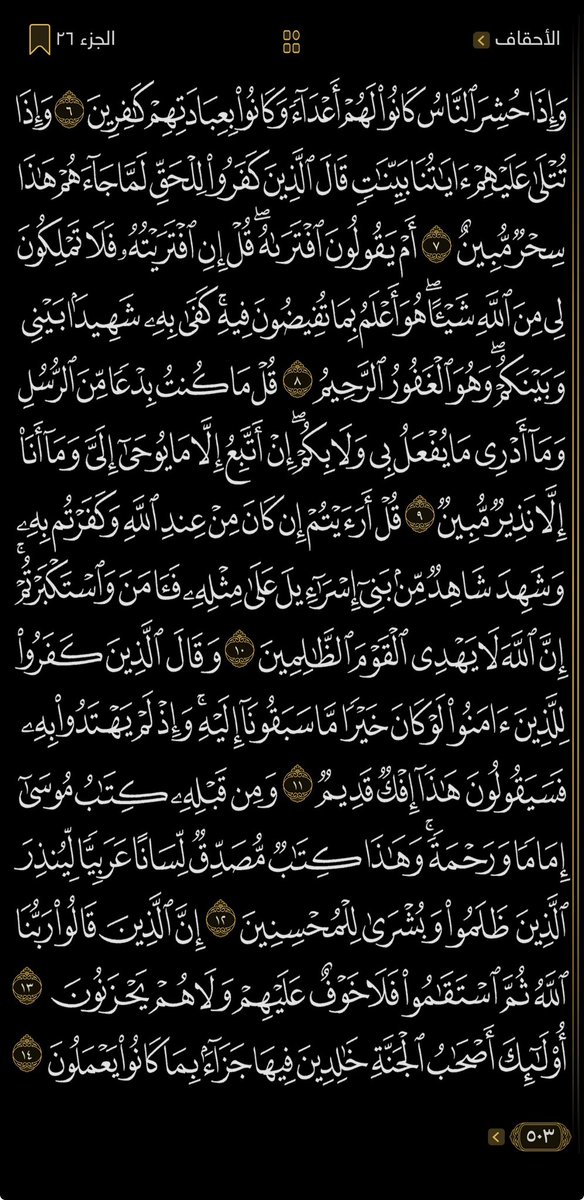 الأحقاف
الجزء ٢٦
وَإِذَا حُشِرَ ٱلنَّاسُ كَانُوا۟ لَهُمْ أَعْدَآءً وَكَانُوا۟ بِعِبَادَتِهِمْ كَٰفِرِينَ ٦ وَإِذَا
تُتْلَىٰ عَلَيْهِمْ ءَايَٰتُنَا بَيِّنَٰتٍ قَالَ ٱلَّذِينَ كَفَرُوا۟ لِلْحَقِّ لَمَّا جَآءَهُمْ هَٰذَا
سِحْرٌ مُّبِينٌ ٧ أَمْ يَقُولُونَ ٱفْتَرَىٰهُ ۖ قُلْ إِنِ ٱفْتَرَيْتُهُۥ فَلَا تَمْلِكُونَ
لِى مِنَ ٱللَّهِ شَيْـًٔا ۖ هُوَ أَعْلَمُ بِمَا تُفِيضُونَ فِيهِ ۚ كَفَىٰ بِهِۦ شَهِيدًۢا بَيْنِى
وَبَيْنَكُمْ ۖ وَهُوَ ٱلْغَفُورُ ٱلرَّحِيمُ ٨ قُلْ مَا كُنتُ بِدْعًا مِّنَ ٱلرُّسُلِ
وَمَآ أَدْرِى مَا يُفْعَلُ بِى وَلَا بِكُمْ ۖ إِنْ أَتَّبِعُ إِلَّا مَا يُوحَىٰٓ إِلَىَّ وَمَآ أَنَا۠
إِلَّا نَذِيرٌ مُّبِينٌ ٩ قُلْ أَرَءَيْتُمْ إِن كَانَ مِنْ عِندِ ٱللَّهِ وَكَفَرْتُم بِهِۦ
وَشَهِدَ شَاهِدٌ مِّنۢ بَنِىٓ إِسْرَٰٓءِيلَ عَلَىٰ مِثْلِهِۦ فَـَٔامَنَ وَٱسْتَكْبَرْتُمْ ۖ
إِنَّ ٱللَّهَ لَا يَهْدِى ٱلْقَوْمَ ٱلظَّٰلِمِينَ ١٠ وَقَالَ ٱلَّذِينَ كَفَرُوا۟
لِلَّذِينَ ءَامَنُوا۟ لَوْ كَانَ خَيْرًا مَّا سَبَقُونَآ إِلَيْهِ ۚ وَإِذْ لَمْ يَهْتَدُوا۟ بِهِۦ
فَسَيَقُولُونَ هَٰذَآ إِفْكٌ قَدِيمٌ ١١ وَمِن قَبْلِهِۦ كِتَٰبُ مُوسَىٰٓ
إِمَامًا وَرَحْمَةً ۚ وَهَٰذَا كِتَٰبٌ مُّصَدِّقٌ لِّسَانًا عَرَبِيًّا لِّيُنذِرَ
ٱلَّذِينَ ظَلَمُوا۟ وَبُشْرَىٰ لِلْمُحْسِنِينَ ١٢ إِنَّ ٱلَّذِينَ قَالُوا۟ رَبُّنَا
ٱللَّهُ ثُمَّ ٱسْتَقَٰمُوا۟ فَلَا خَوْفٌ عَلَيْهِمْ وَلَا هُمْ يَحْزَنُونَ ١٣
أُو۟لَٰٓئِكَ أَصْحَٰبُ ٱلْجَنَّةِ خَٰلِدِينَ فِيهَا جَزَآءًۢ بِمَا كَانُوا۟ يَعْمَلُونَ ١٤
٥٠٣